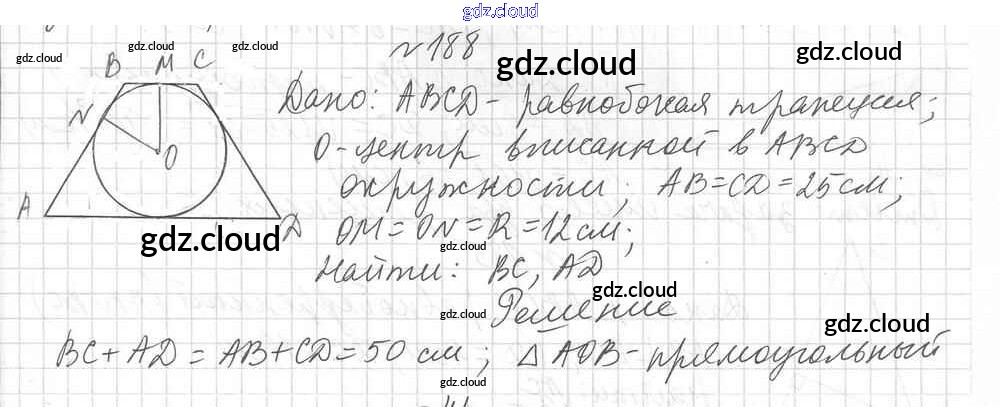 gdz.cloud
№188
gdz.cloud
gdz.cloud
gdz.cloud
gdz.cloud
B M C
N
O
A
D
Дано: ABCD - равнобокая трапеция;
O - центр вписанной в ABCD
окружности; AB = CD = 25 см;
gdz.cloud
OM = ON = R = 12 см;
gdz.cloud
Найти: BC, AD
gdz.cloud
Решение
gdz.cloud
BC + AD = AB + CD = 50 см; △ AOB - прямоугольный
gdz.cloud